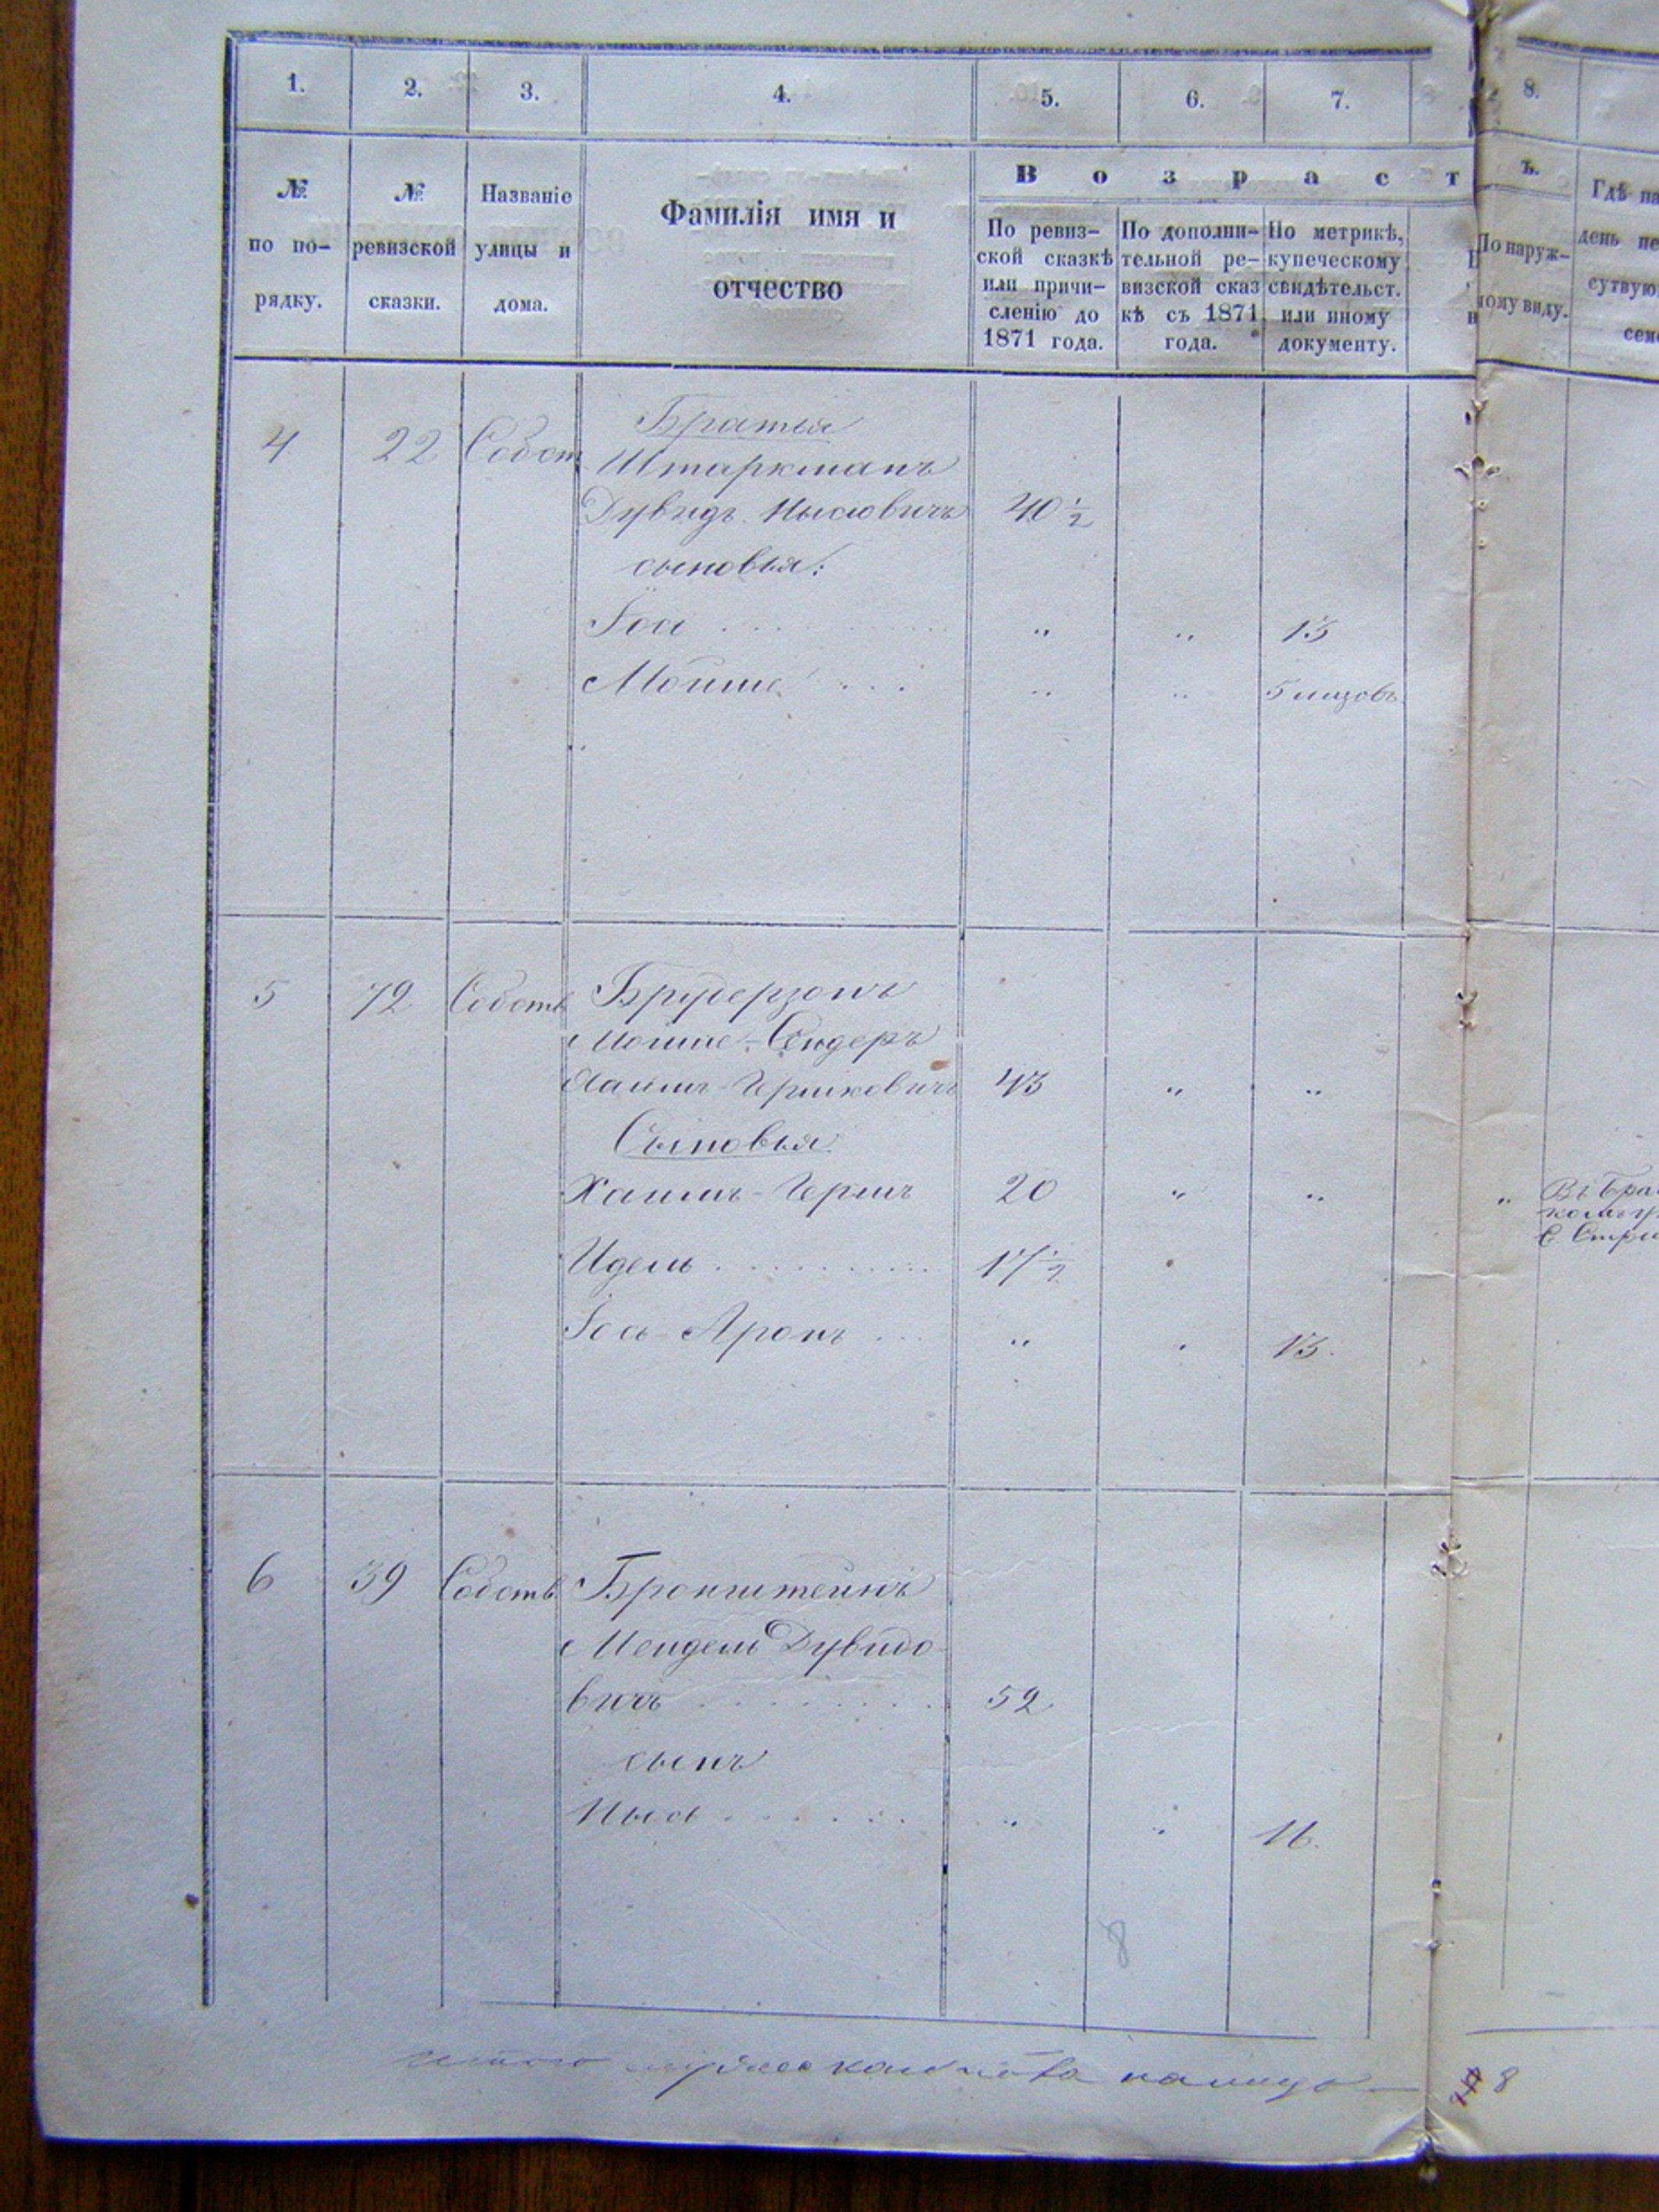 1. 2. 3. 4. 5. 6. 7. 8.
В о з р а с т ъ.
№ по по-рядку.
№ ревизской сказки.
Названіе улицы и дома.
Фамилія имя и отчество
По ревиз-
ской сказкѣ
или причи-
сленію до
1871 года.
По дополни-
тельной ре-
визской сказ
кѣ съ 1871
года.
По метрикѣ,
купеческому
свидѣтельст.
или иному
документу.
По наруж-
ному виду.
Гдѣ на
день пе
сутвую
сем
Братья
4 22 Собст Штаркманъ
Дувидъ Нысювичъ 40 1/2
сыновья:
Іос . . . „ „ 15
Мойше . . . „ „ 5 мцовъ
5 72 Собств Брудерзонъ
Мойше-Сендеръ
Хаимъ-Гершковичъ 43 „ „
Сыновья:
Хаимъ-Гершъ 20 „ „ „ Въ Бра
Идель . . . 17 1/2
С. Стри
Іось-Аронъ . . . „ 13.
6 39 Собств Бронштейнъ
Мендель Дувидо-
вичъ . . . 52
сынъ
Нысь . . . „ „ 16.
8
8